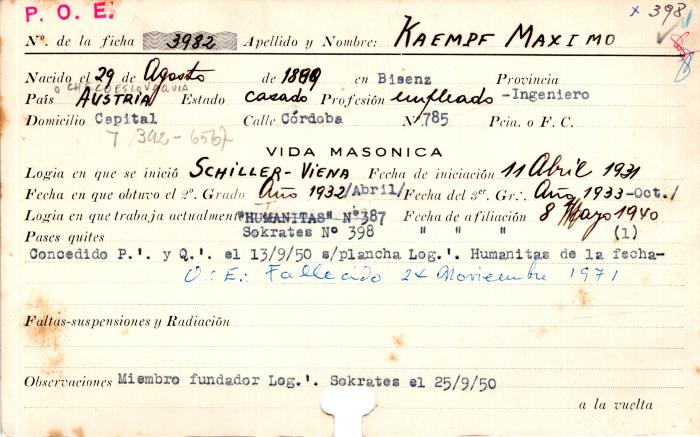 P. O. E.
x 398
Nº. de la ficha 3982 Apellido y Nombre: KAEMPF MAXIMO
Nacido el 29 de Agosto de 1899 en Bisenz Provincia
O CHECOESLOVAQUIA
País AUSTRIA Estado casado Profesión empleado -Ingeniero
Domicilio Capital Calle Córdoba Nº 785 Pcia. o F. C.
7/392-6567
VIDA MASONICA
Logia en que se inició SCHILLER-VIENA Fecha de iniciación 11 Abril 1931
Fecha en que obtuvo el 2º. Grado Año 1932/Abril/ Fecha del 3er. Gr.: Año 1933-Oct./
Logia en que trabaja actualmente "HUMANITAS" Nº 387 Fecha de afiliación 8 Mayo 1940
Pases quites Sokrates Nº 398 " " " (1)
Concedido P.'. y Q.'. el 13/9/50 s/plancha Log.'. Humanitas de la fecha-
O.: E.: Fallecido 24 Noviembre 1971
Faltas-suspensiones y Radiación
Observaciones Miembro fundador Log.'. Sokrates el 25/9/50
a la vuelta